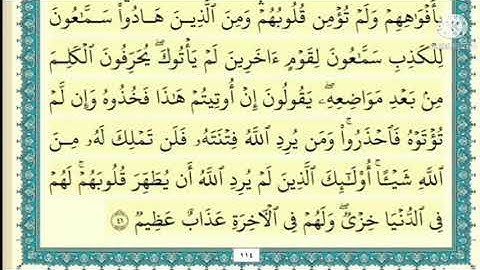 بِأَفْوَٰهِهِمْ وَلَمْ تُؤْمِن قُلُوبُهُمْ ۛ وَمِنَ ٱلَّذِينَ هَادُوا۟ ۛ سَمَّـٰعُونَ
لِلْكَذِبِ سَمَّـٰعُونَ لِقَوْمٍ ءَاخَرِينَ لَمْ يَأْتُوكَ ۖ يُحَرِّفُونَ ٱلْكَلِمَ
مِنۢ بَعْدِ مَوَاضِعِهِۦ ۖ يَقُولُونَ إِنْ أُوتِيتُمْ هَـٰذَا فَخُذُوهُ وَإِن لَّمْ
تُؤْتَوْهُ فَٱحْذَرُوا۟ ۚ وَمَن يُرِدِ ٱللَّهُ فِتْنَتَهُۥ فَلَن تَمْلِكَ لَهُۥ مِنَ
ٱللَّهِ شَيْـًٔا ۚ أُو۟لَـٰٓئِكَ ٱلَّذِينَ لَمْ يُرِدِ ٱللَّهُ أَن يُطَهِّرَ قُلُوبَهُمْ ۚ لَهُمْ
فِى ٱلدُّنْيَا خِزْىٌ ۖ وَلَهُمْ فِى ٱلْـَٔاخِرَةِ عَذَابٌ عَظِيمٌ ٤١
١١٤